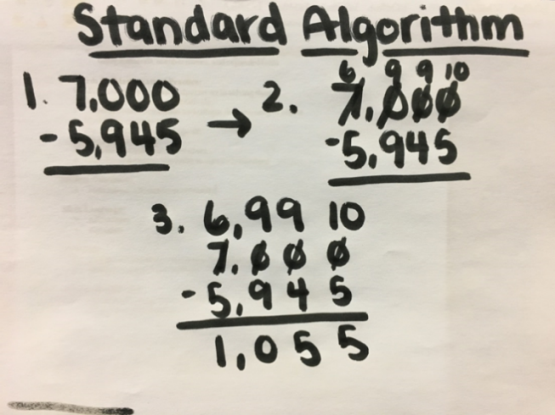 Standard Algorithm
1. 7,000
- 5,945
→ 2. 6 9 9 10
7,000
-5,945
3. 6,99 10
7,000
-5,945
1,055